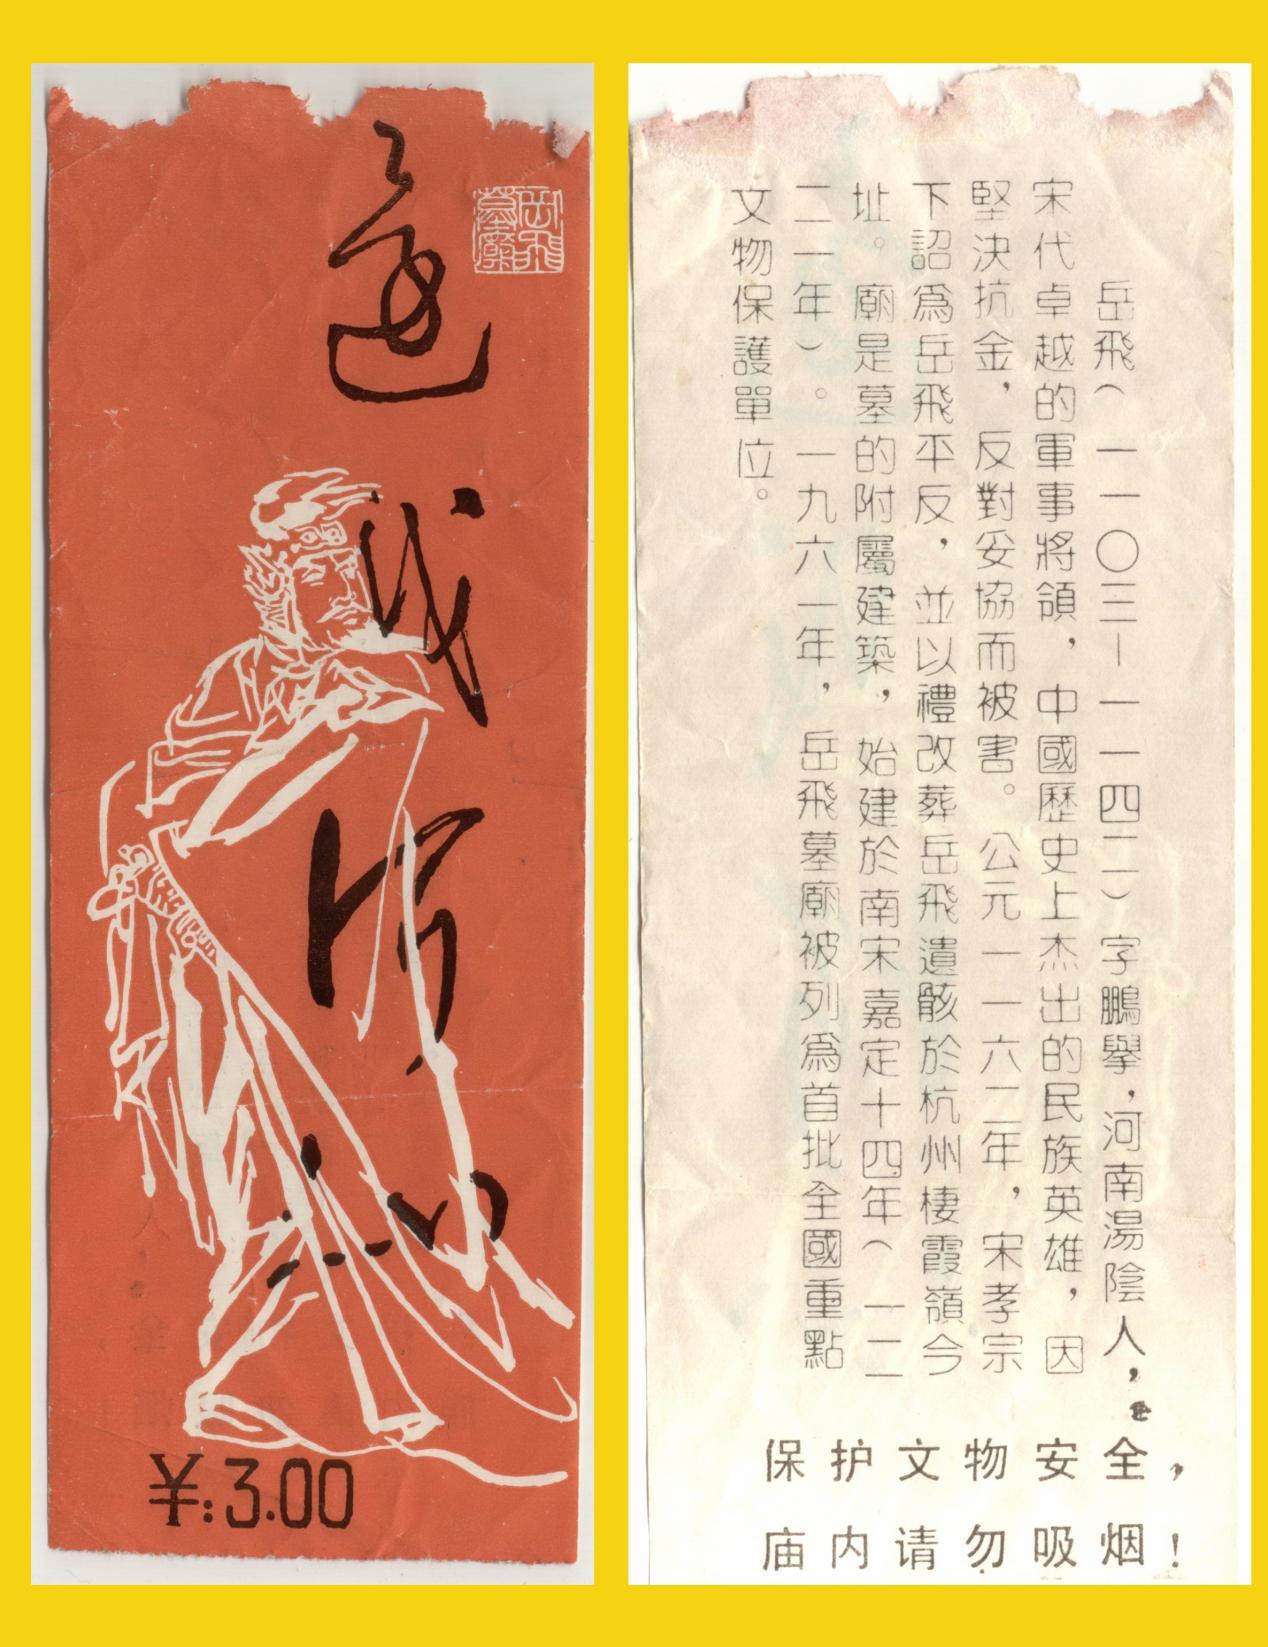 還我河山
岳飛墓廟
¥:3.00
岳飛（一一〇三-一一四二）字鵬舉，河南湯陰人，
宋代卓越的軍事將領，中國歷史上杰出的民族英雄，因
堅決抗金，反對妥協而被害。公元一一六二年，宋孝宗
下詔爲岳飛平反，並以禮改葬岳飛遺骸於杭州棲霞嶺今
址。廟是墓的附屬建築，始建於南宋嘉定十四年（一二
二一年）。一九六一年，岳飛墓廟被列爲首批全國重點
文物保護單位。
保护文物安全，
庙内请勿吸烟！